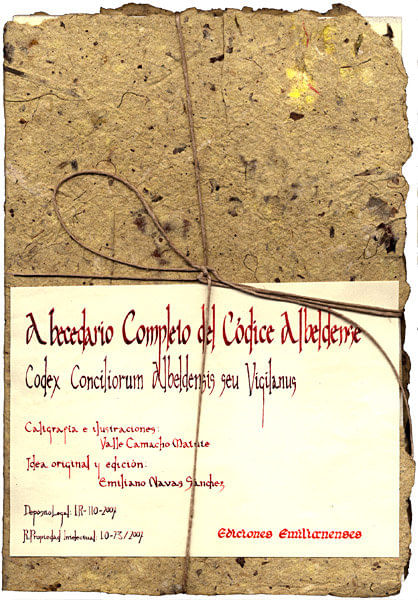 Abecedario Completo del Códice Albeldense
Codex Conciliorum Albeldensis seu Vigilanus
Caligrafía e ilustraciones:
Valle Camacho Matute
Idea original y edición:
Emiliano Navas Sánchez
Deposito Legal: LR-110-2007
R. Propiedad Intelectual: LO-73/2007
Ediciones Emilianenses